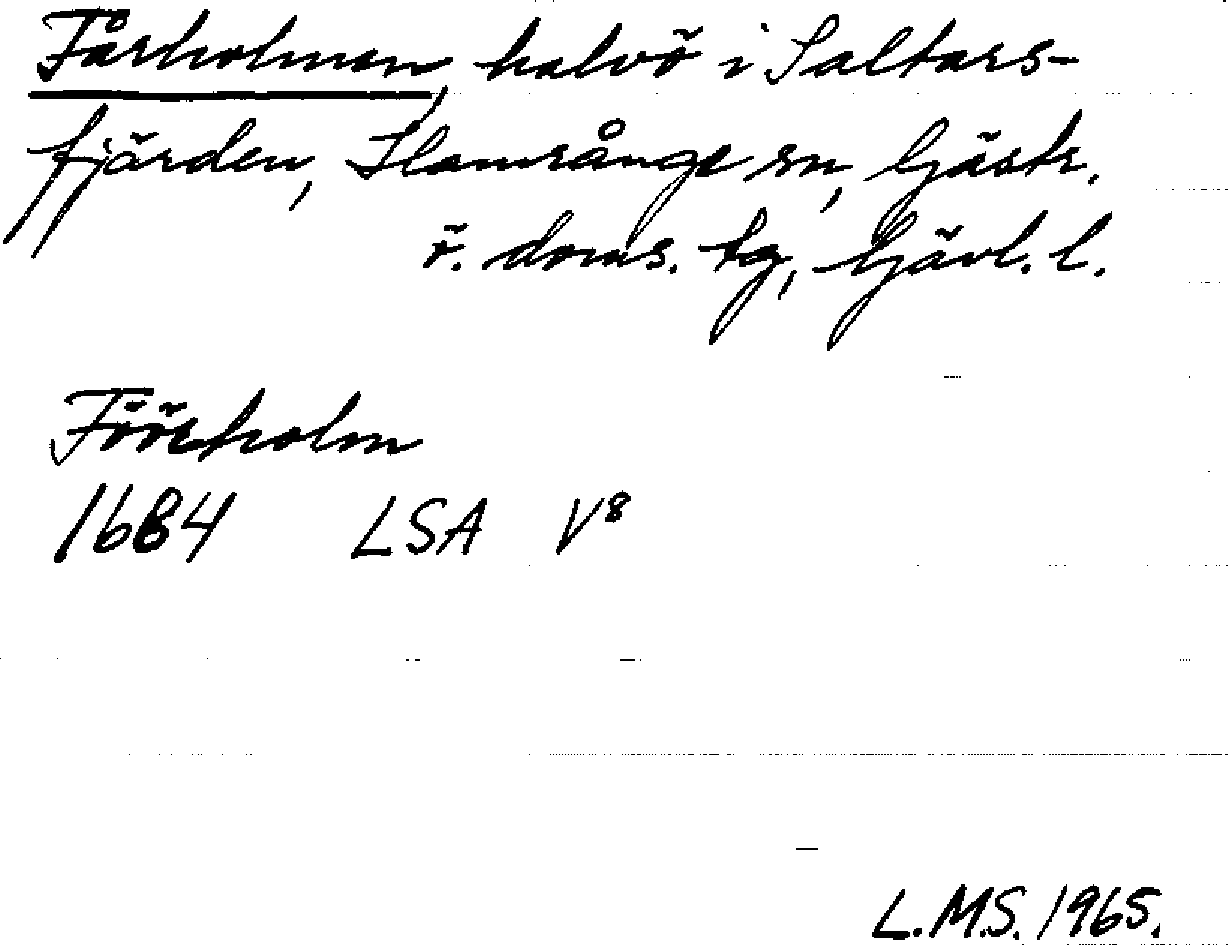 Fårholmen, halvö i Saltars-
fjärden, Hamrånge sn, Gästr.
ö. doms. tg, Gävl. l.
Fööreholm
1684 LSA V8
L.M.S. 1965.